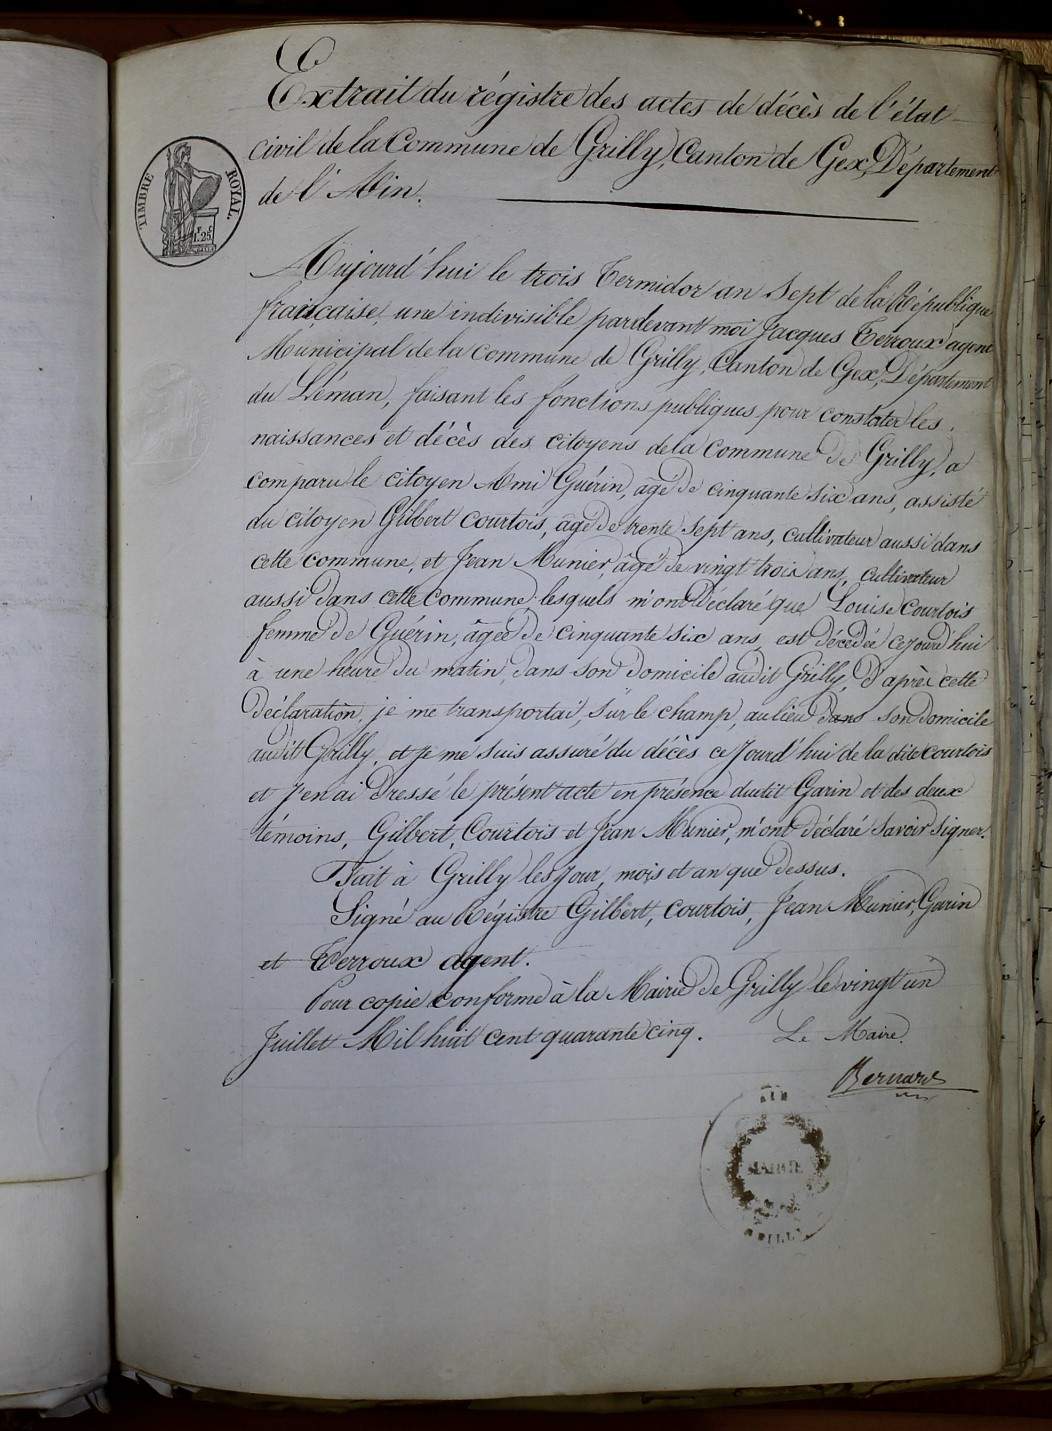 Extrait du régistre des actes de décès de l'état
civil de la Commune de Grilly, Canton de Gex, Département
de l'Ain.
TIMBRE ROYAL.
1.F 25.C
Aujourd'hui le trois Termidor an Sept de la République
française, une indivisible pardevant moi Jacques Terroux agent
Municipal de la commune de Grilly, Canton de Gex, Département
du Léman, faisant les fonctions publiques pour constater les
naissances et décès des citoyens de la Commune de Grilly, a
comparu le citoyen Ami Guérin, âgé de cinquante six ans, assisté
du citoyen Gilbert Courtois, âgé de trente Sept ans, cultivateur aussi dans
cette commune, et Jean Munier, âgé de vingt trois ans, cultivateur
aussi dans cette Commune, lesquels m'ont Déclaré que Louise Courtois
femme de Guérin, âgée de cinquante six ans, est décédée cejourd'hui
à une heure du matin, dans son domicile audit Grilly, D'après cette
Déclaration, je me transportai, sur le champ, au lieu dans son Domicile
audit Grilly, et je me suis assuré du décès ce Jourd'hui de la dite Courtois
et J'en ai Dressé le présent acte en présence dudit Garin et des deux
témoins, Gilbert, Courtois et Jean Munier, m'ont déclaré Savoir Signer.
Fait à Grilly les Jour, mois et an que Dessus.
Signé au Régistre Gilbert, Courtois, Jean Munier, Garin
et Terroux agent.
Pour copie conforme à la Mairie de Grilly le vingt un
Juillet Mil huit cent quarante cinq. Le Maire.
Bernard
AIN
MAIRIE
GRILLY